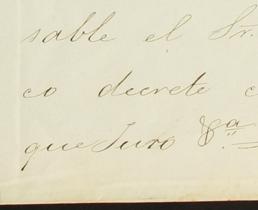 sable el Sr.
co decrete c
que Juro &ª